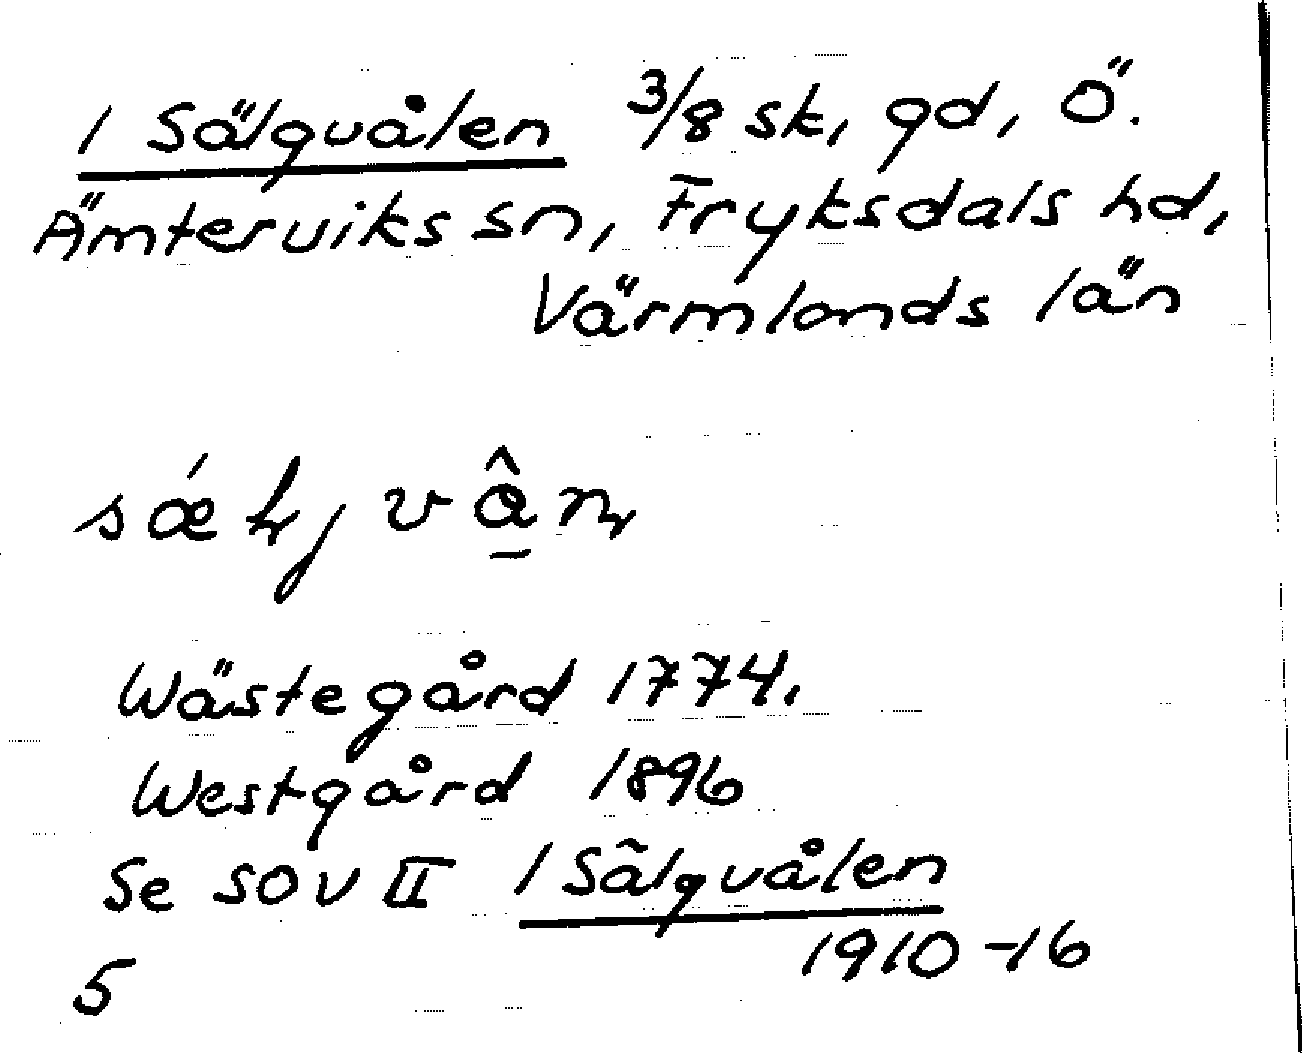 1 Sälgvålen 3/8 sk, gd, Ö.
Ämterviks sn, Fryksdals hd,
Värmlands län
Wästegård 1774.
Westgård 1896
Se SOV II 1 Sälgvålen
1910-16
5